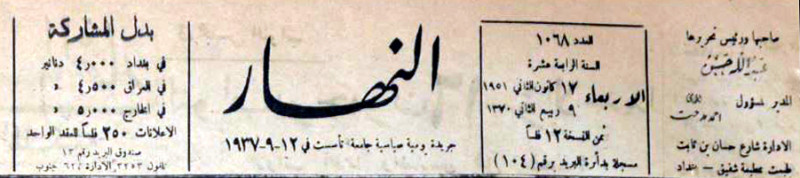 صاحبها ورئيس تحريرها
عبد الله حسن
المدير المسؤول
الادارة شارع حسان بن ثابت
طبعت بمطبعة شفيق - بغداد
العدد ١٠٦٨
السنة الرابعة عشرة
الاربعاء
١٧ كانون الثاني ١٩٥١
٩ ربيع الثاني ١٣٧٠
ثمن النسخة ١٢ فلساً
مسجلة بدائرة البريد برقم (١٠٤)
النهار
جريدة يومية سياسية جامعة تأسست في ١٢-٩-١٩٣٧
بدل المشاركة
في بغداد ٤٫٠٠٠ دنانير
في العراق ٤٫٥٠٠ »
في الخارج ٥٫٠٠٠ »
الاعلانات ٢٥٠ فلساً للعقد الواحد
صندوق البريد رقم ١٣
تلفون ٣٢٥٣ الادارة ٦٢ جنوب